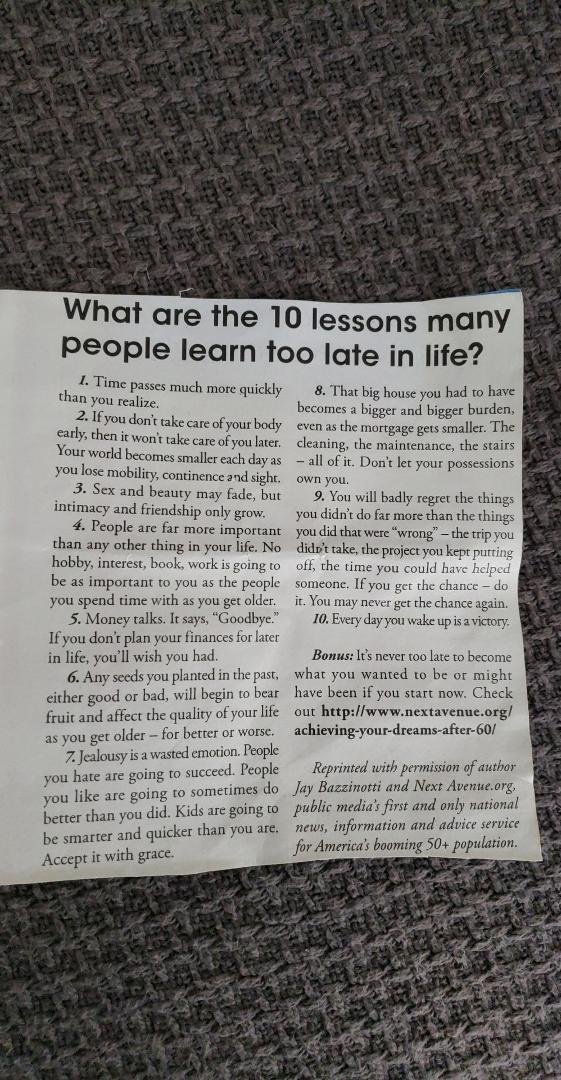 What are the 10 lessons many
people learn too late in life?
1. Time passes much more quickly
than you realize.
2. If you don't take care of your body
early, then it won't take care of you later.
Your world becomes smaller each day as
you lose mobility, continence and sight.
3. Sex and beauty may fade, but
intimacy and friendship only grow.
4. People are far more important
than any other thing in your life. No
hobby, interest, book, work is going to
be as important to you as the people
you spend time with as you get older.
5. Money talks. It says, "Goodbye."
If you don't plan your finances for later
in life, you'll wish you had.
6. Any seeds you planted in the past,
either good or bad, will begin to bear
fruit and affect the quality of your life
as you get older – for better or worse.
7. Jealousy is a wasted emotion. People
you hate are going to succeed. People
you like are going to sometimes do
better than you did. Kids are going to
be smarter and quicker than you are.
Accept it with grace.
8. That big house you had to have
becomes a bigger and bigger burden,
even as the mortgage gets smaller. The
cleaning, the maintenance, the stairs
– all of it. Don't let your possessions
own you.
9. You will badly regret the things
you didn't do far more than the things
you did that were "wrong" – the trip you
didn't take, the project you kept putting
off, the time you could have helped
someone. If you get the chance – do
it. You may never get the chance again.
10. Every day you wake up is a victory.
Bonus: It's never too late to become
what you wanted to be or might
have been if you start now. Check
out http://www.nextavenue.org/
achieving-your-dreams-after-60/
Reprinted with permission of author
Jay Bazzinotti and Next Avenue.org,
public media's first and only national
news, information and advice service
for America's booming 50+ population.